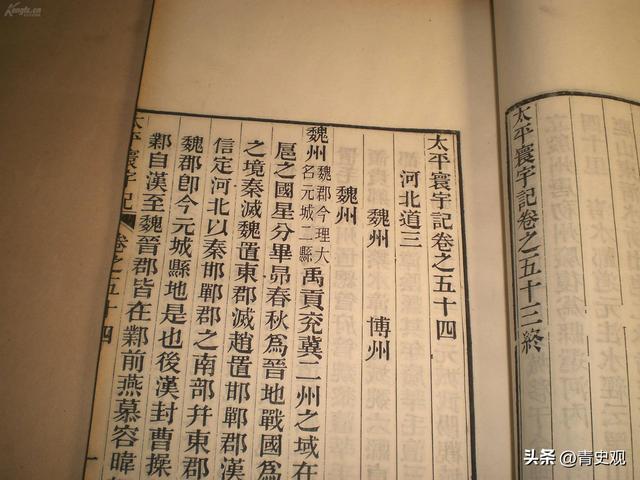 太平寰宇記卷之五十三終
太平寰宇記卷之五十四
河北道三
魏州 博州
魏州
魏州 魏郡今理大名元城二縣 禹貢兗冀二州之域在
扈之國星分畢昴春秋為晉地戰國為
之境秦滅魏置東郡滅趙置邯鄲郡漢
信定河北以秦邯鄲郡之南部幷東郡
魏郡卽今元城縣地是也後漢封曹操
鄴自漢至魏晉郡皆在鄴前燕慕容暐
太平寰宇記 卷之五十四 一
Kongfz.cn
头条 @青史观